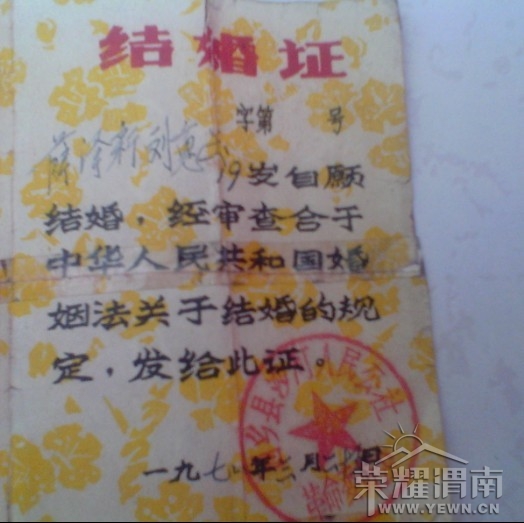 结婚证
字第 号
19岁自愿
结婚，经审查合于
中华人民共和国婚
姻法关于结婚的规
定，发给此证。
一九七 年 月 日
乡县 人民公社
荣耀渭南
WWW.YEWN.CN